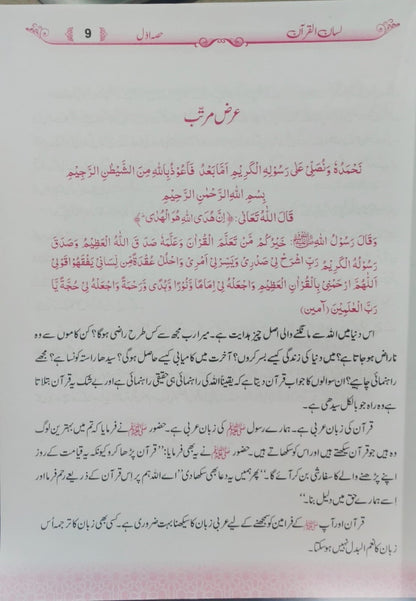 لسان القرآن حصہ اول 9
عرض مرتب
نَحْمَدُہٗ وَنُصَلِّیْ عَلٰی رَسُوْلِہِ الْکَرِیْمِ اَمَّا بَعْدُ فَاَعُوْذُ بِاللّٰہِ مِنَ الشَّیْطٰنِ الرَّجِیْمِ
بِسْمِ اللّٰہِ الرَّحْمٰنِ الرَّحِیْمِ
قَالَ اللّٰہُ تَعَالٰی: ﴿اِنَّ ھُدَی اللّٰہِ ھُوَ الْھُدٰی ؕ﴾
وَقَالَ رَسُوْلُ اللّٰہِ ﷺ: خَیْرُکُمْ مَّنْ تَعَلَّمَ الْقُرْاٰنَ وَعَلَّمَہٗ صَدَقَ اللّٰہُ الْعَظِیْمُ وَصَدَقَ
رَسُوْلُہُ الْکَرِیْمُ رَبِّ اشْرَحْ لِیْ صَدْرِیْ وَیَسِّرْ لِیْ اَمْرِیْ وَاحْلُلْ عُقْدَۃً مِّنْ لِّسَانِیْ یَفْقَھُوْا قَوْلِیْ
اَللّٰھُمَّ ارْحَمْنِیْ بِالْقُرْاٰنِ الْعَظِیْمِ وَاجْعَلْہُ لِیْ اِمَامًا وَّنُوْرًا وَّھُدًی وَّرَحْمَۃً وَاجْعَلْہُ لِیْ حُجَّۃً یَّا
رَبَّ الْعٰلَمِیْنَ (آمین)
اس دنیا میں اللہ سے مانگنے والی اصل چیز ہدایت ہے۔ میرا رب مجھ سے کس طرح راضی ہوگا؟ کن کاموں سے وہ
ناراض ہو جاتا ہے؟ میں دنیا کی زندگی کیسے بسر کروں؟ آخرت میں کامیابی کیسے حاصل ہوگی؟ سیدھا راستہ کونسا ہے؟ مجھے
راہنمائی چاہیے؟ ان سوالوں کا جواب قرآن دیتا ہے کہ یقیناً اللہ کی راہنمائی ہی حقیقی راہنمائی ہے اور بے شک یہ قرآن بتلاتا
ہے وہ راہ جو بالکل سیدھی ہے۔
قرآن کی زبان عربی ہے۔ ہمارے رسول ﷺ کی زبان عربی ہے۔ حضور ﷺ نے فرمایا کہ تم میں بہترین لوگ
وہ ہیں جو قرآن سیکھتے ہیں اور اس کو سکھاتے ہیں۔ حضور ﷺ نے یہ بھی فرمایا: ’’قرآن پڑھا کرو کیونکہ یہ قیامت کے روز
اپنے پڑھنے والے کا سفارشی بن کر آئے گا۔‘‘ پھر ہمیں یہ دعا بھی سکھا دی ’’اے اللہ ہم پر اِس قرآن کے ذریعے رحم فرما اور
اِسے ہمارے حق میں دلیل بنا۔‘‘
قرآن اور آپ ﷺ کے فرامین کو سمجھنے کے لیے عربی زبان کا سیکھنا بہت ضروری ہے۔ کسی بھی زبان کا ترجمہ اُس
زبان کا نعم البدل نہیں ہو سکتا۔